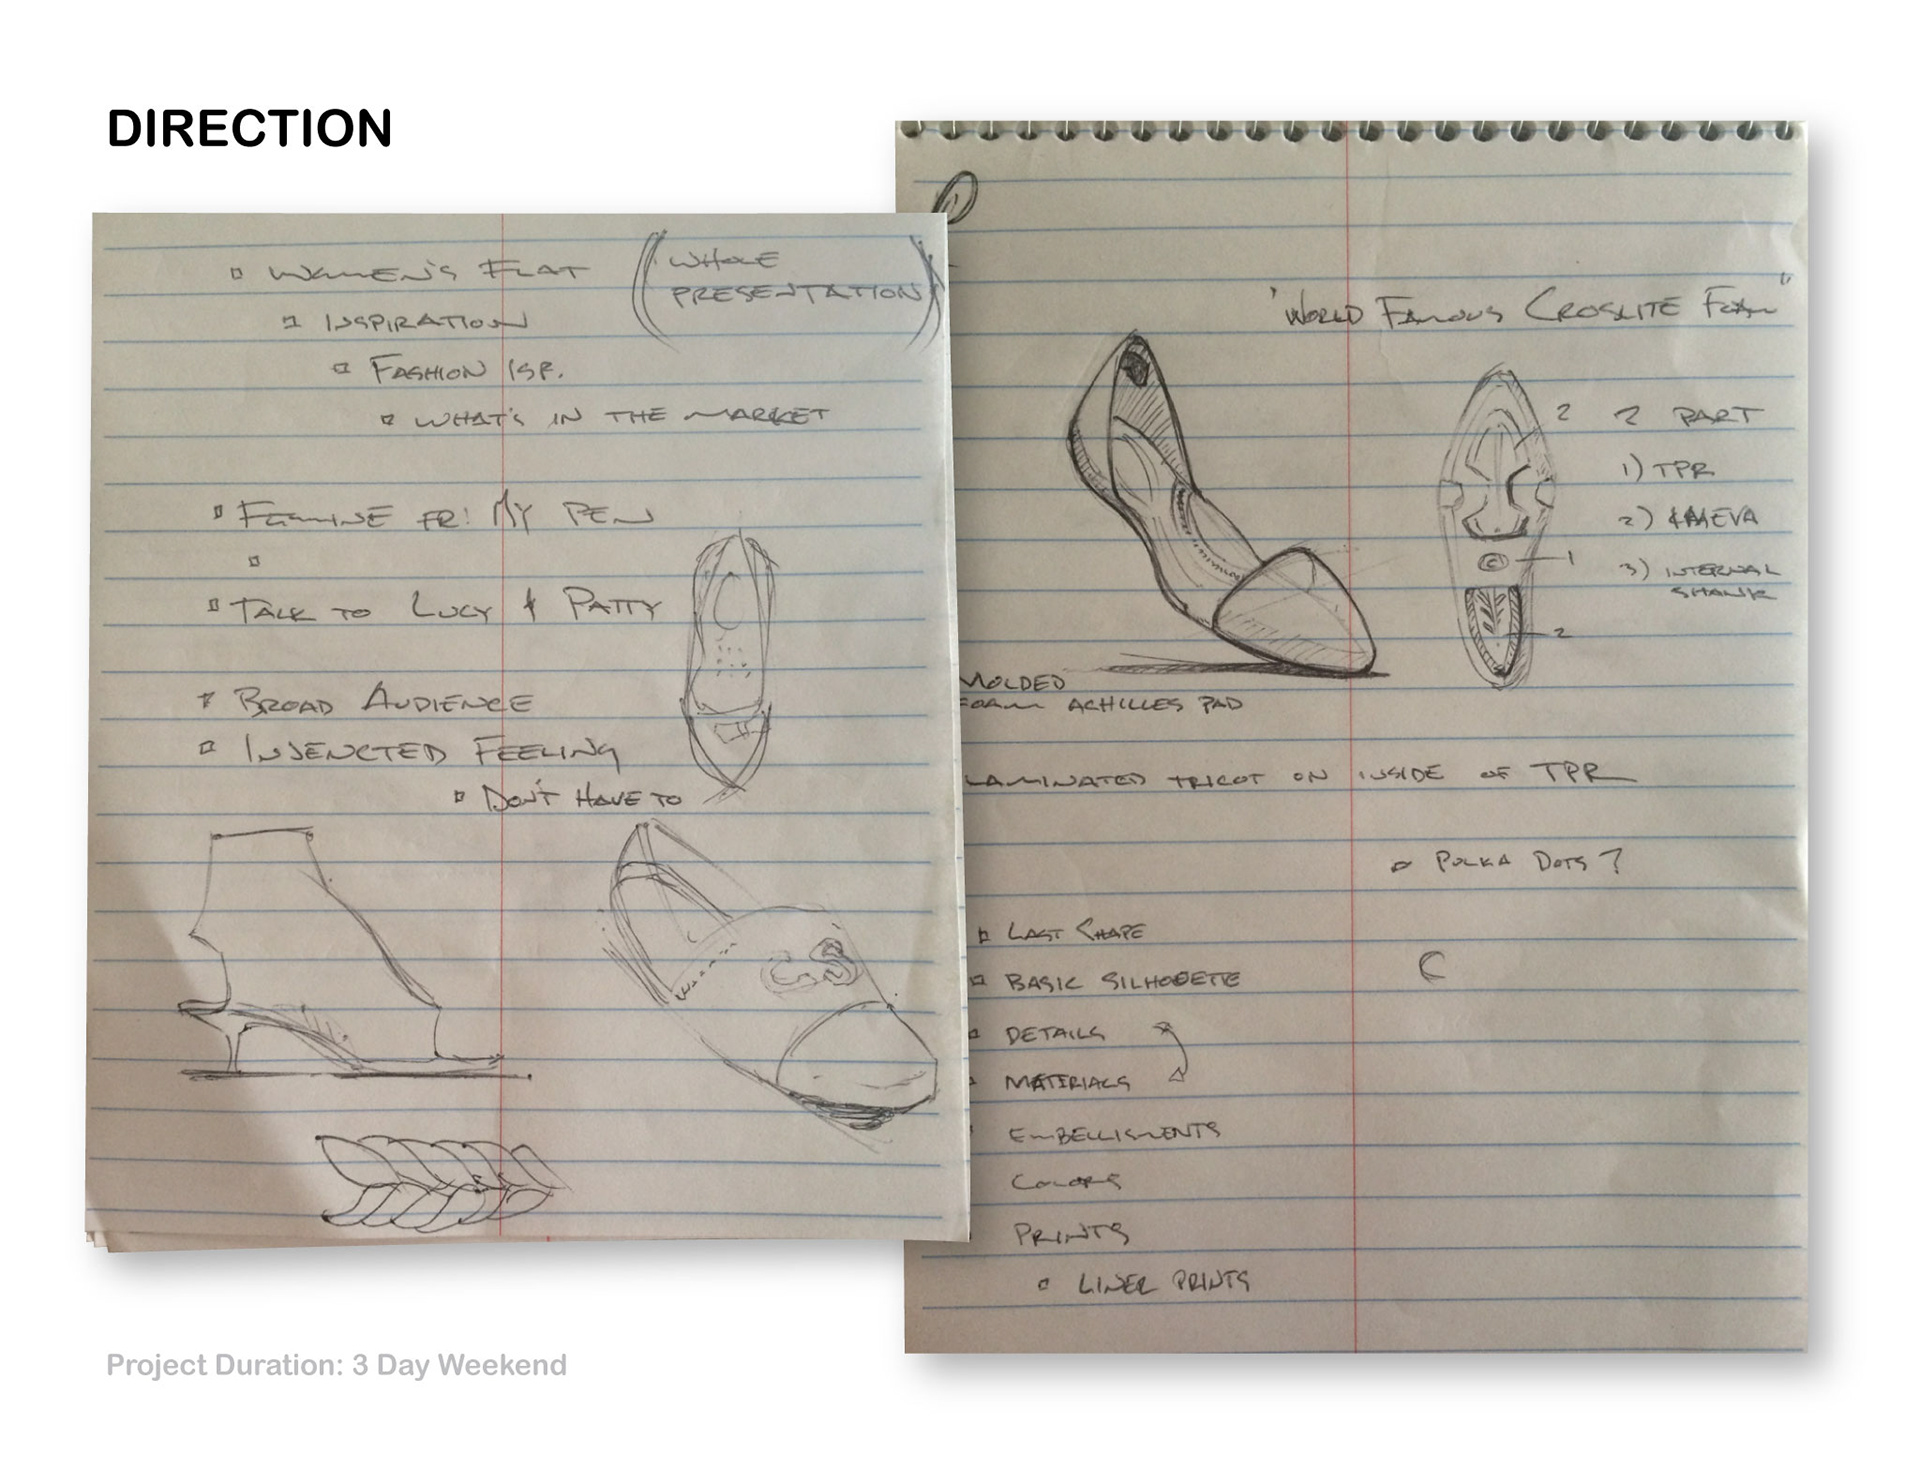 DIRECTION
WOMEN'S FLAT
(WHOLE
PRESENTATION)
INSPIRATION
FASHION ISP.
WHAT'S IN THE MARKET
FEMINE FR! MY PEN
TALK TO LUCY & PATTY
BROAD AUDIENCE
INJENCTED FEELING
DON'T HAVE TO
"WORLD FAMOUS CROSLITE FOAM"
2
2 PART
1) TPR
2) EVA
1
3) INTERNAL
SHANK
2
MOLDED
FOAM ACHILLES PAD
LAMINATED TRICOT ON INSIDE OF TPR
POLKA DOTS?
LAST SHAPE
BASIC SILHOEETE
C
DETAILS
MATERIALS
EMBELLISMENTS
COLORS
PRINTS
LINER PRINTS
Project Duration: 3 Day Weekend